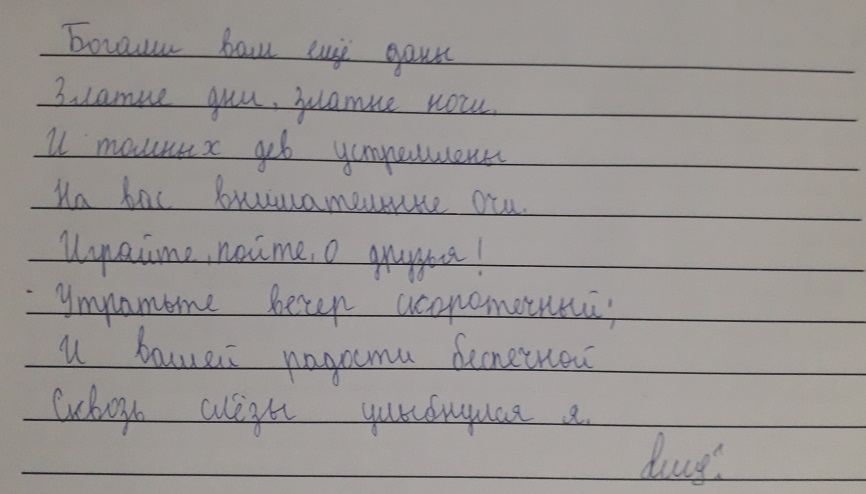 Богами вам ещё даны
Златые дни, златые ночи.
И томных дев устремлены
На вас внимательные очи.
Играйте, пойте, о друзья!
Утратьте вечер скоротечный;
И вашей радости беспечной
Сквозь слёзы улыбнулся я.